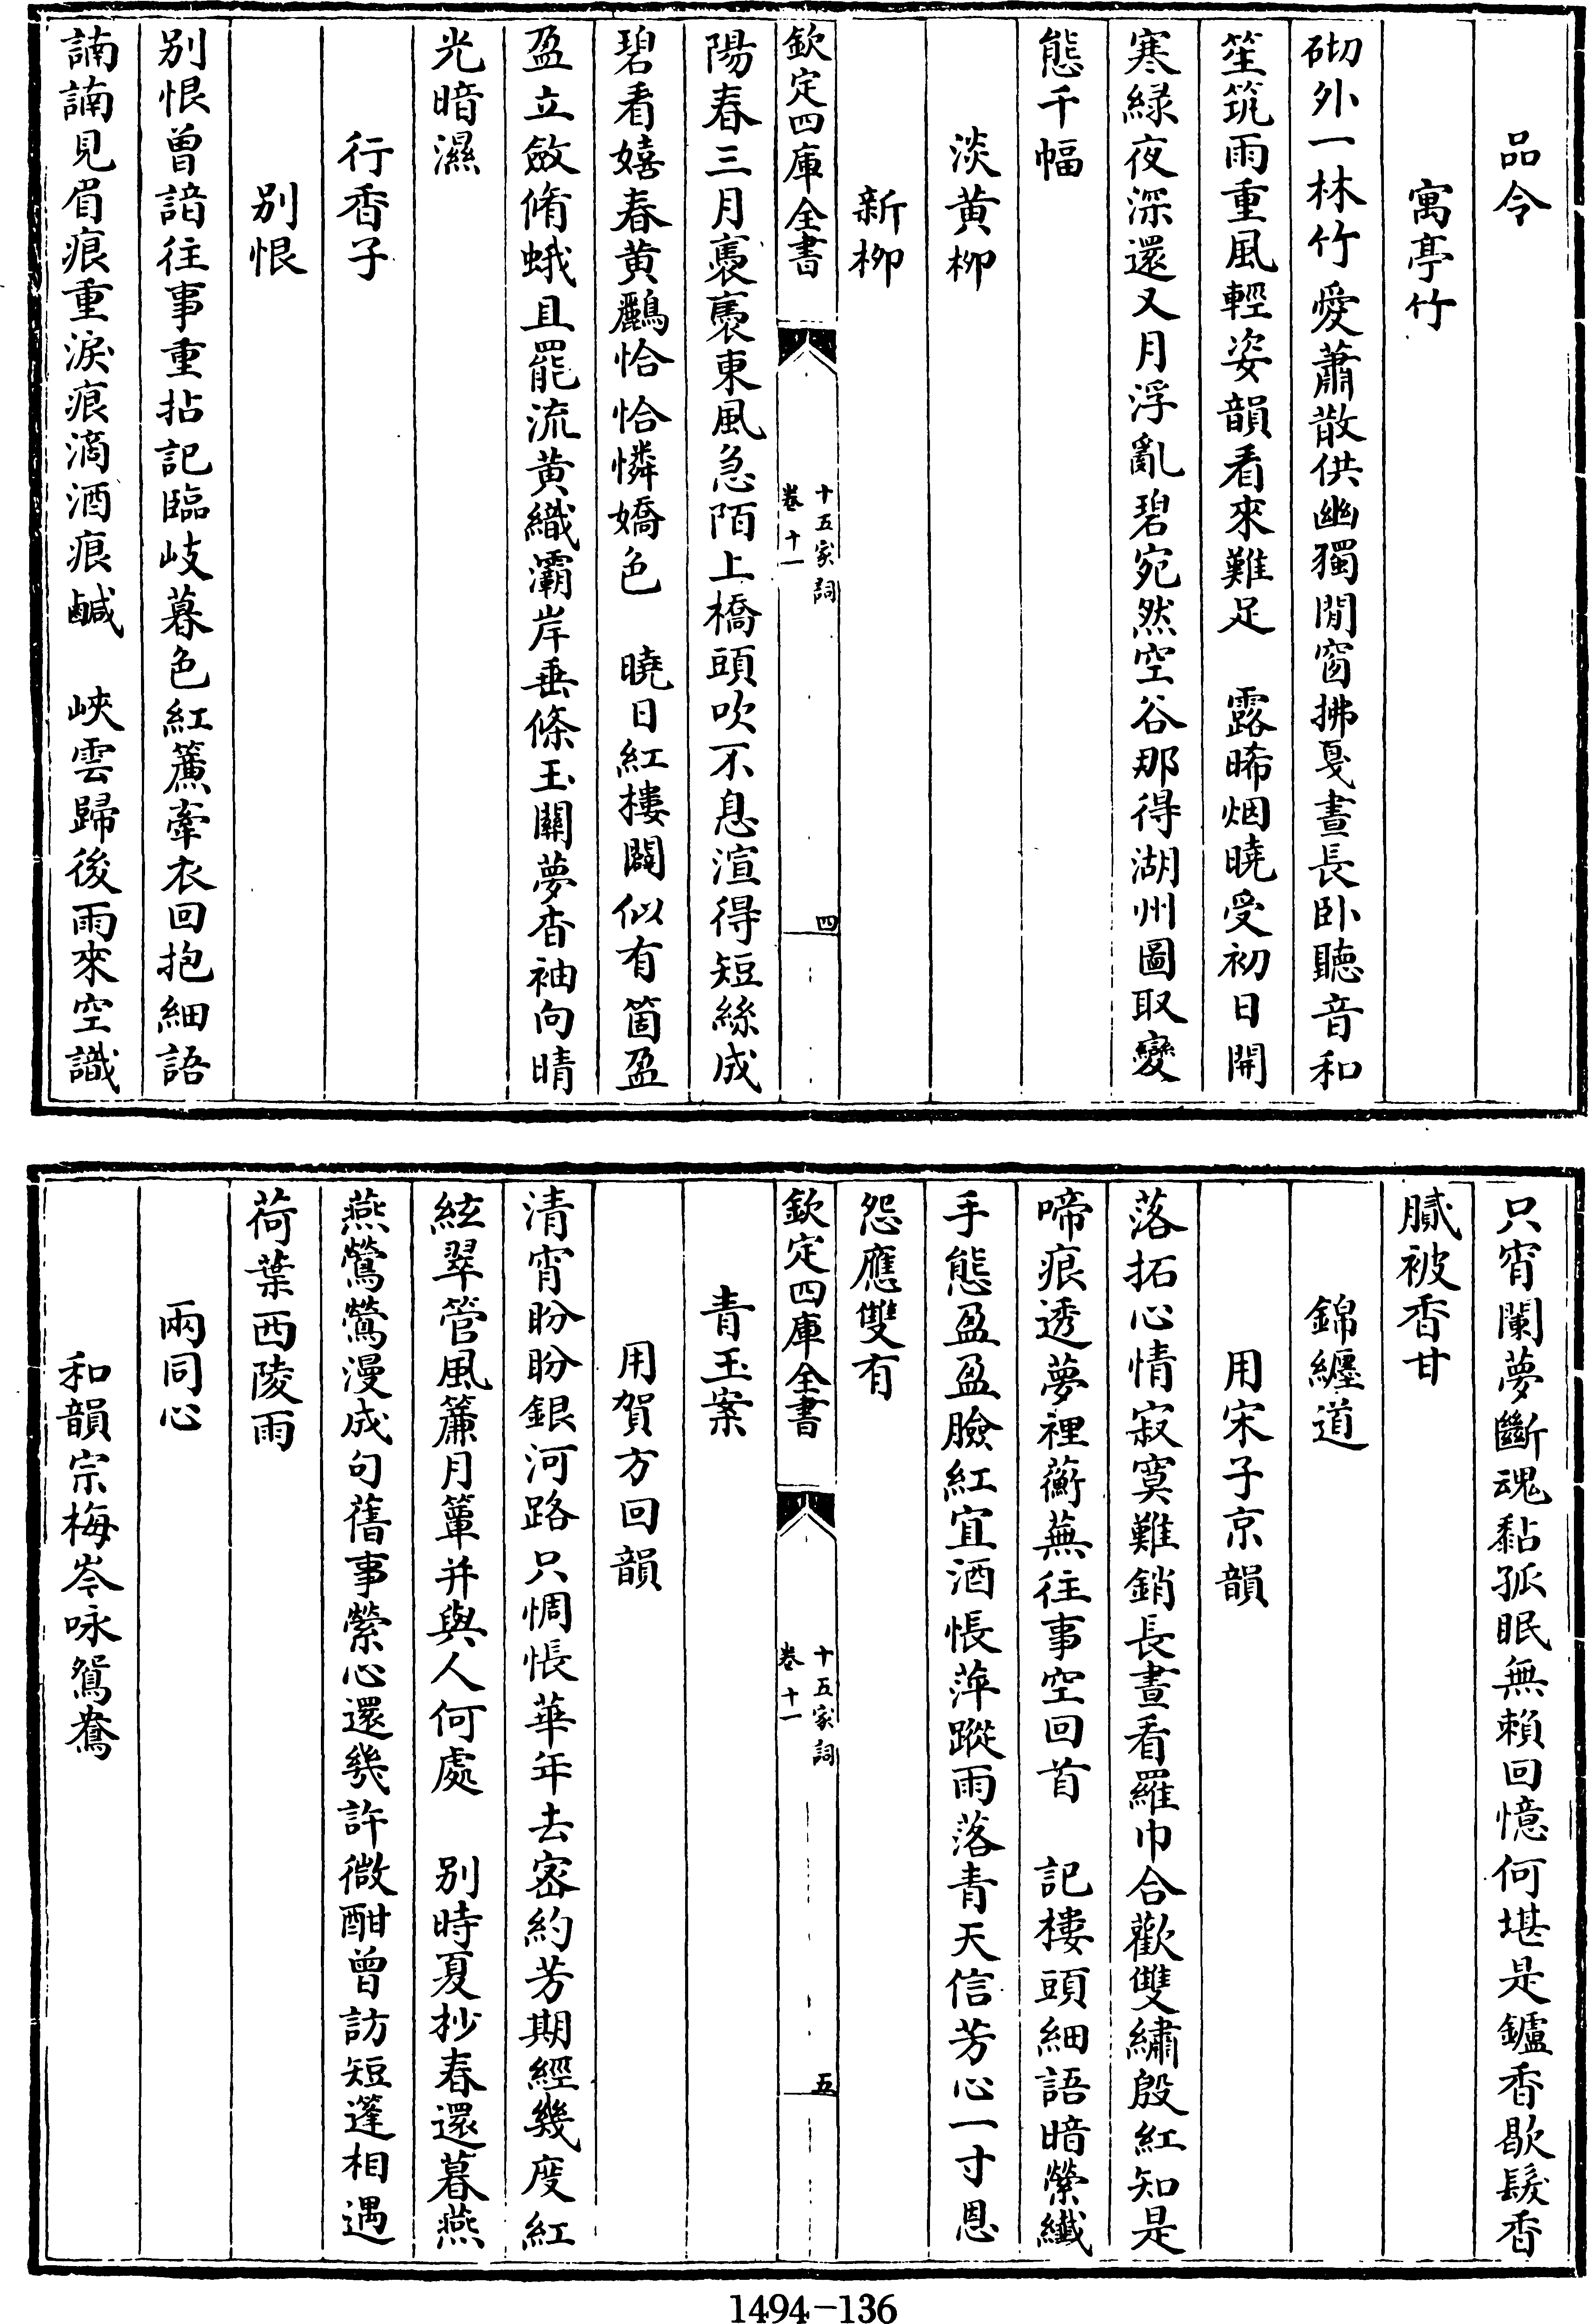 品令
寓亭竹
砌外一林竹愛蕭散供幽獨閒窗拂戛晝長卧聽音和
笙筑雨重風輕姿韻看來難足　露晞烟曉受初日開
寒綠夜深還又月浮亂碧宛然空谷那得湖州圖取變
態千幅
淡黄柳
新柳
欽定四庫全書
十五家詞
卷十一
四
陽春三月裊裊東風急陌上橋頭吹不息渲得短絲成
碧看嬉春黄鸝恰恰憐嬌色　曉日紅樓闢似有箇盈
盈立斂脩蛾且罷流黄織灞岸垂條玉關夢杳袖向晴
光暗濕
行香子
别恨
别恨曾諳往事重拈記臨岐暮色紅簾牽衣回抱細語
諵諵見眉痕重淚痕滴酒痕鹹　峽雲歸後雨來空識
只宵闌夢斷魂黏孤眠無賴回憶何堪是鑪香歇髮香
膩被香甘
錦纏道
用宋子京韻
落拓心情寂寞難銷長晝看羅巾合歡雙繡殷紅知是
啼痕透夢裡蘅蕪往事空回首　記樓頭細語暗縈纖
手態盈盈臉紅宜酒悵萍蹤雨落青天信芳心一寸恩
怨應雙有
欽定四庫全書
十五家詞
卷十一
五
青玉案
用賀方回韻
清宵盼盼銀河路只惆悵華年去宻約芳期經幾度紅
絃翠管風簾月簟并與人何處　别時夏抄春還暮燕
燕鶯鶯漫成句舊事縈心還幾許微酣曾訪短篷相遇
荷葉西陵雨
兩同心
和韻宗梅岑咏鴛鴦
1494-136